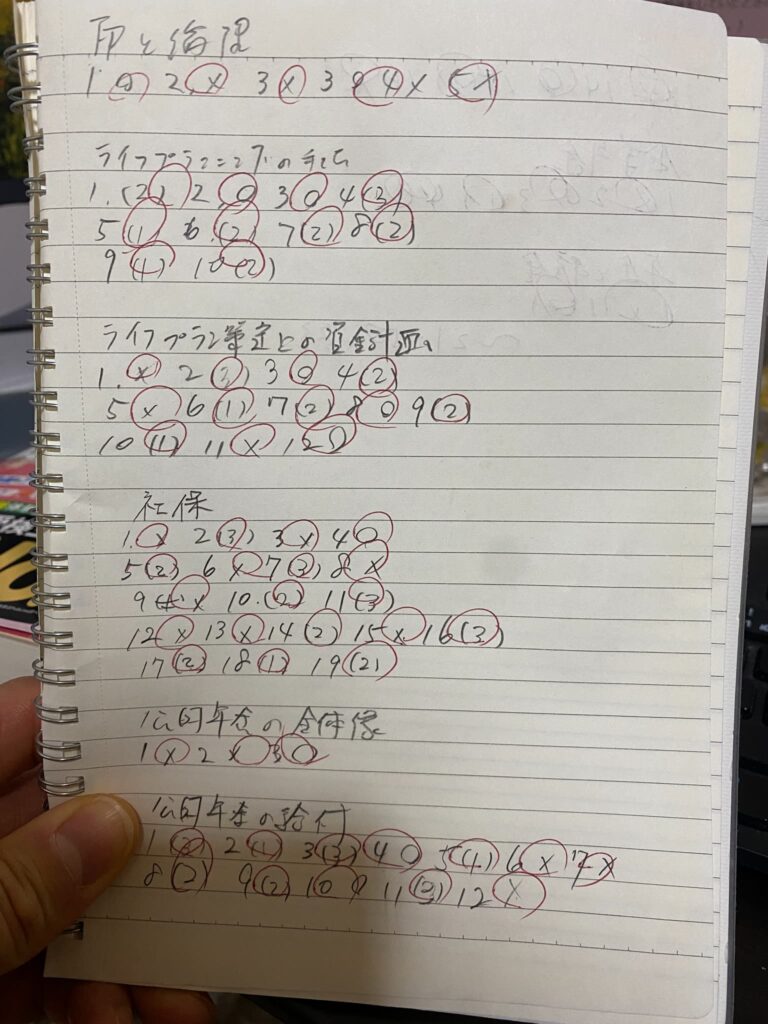 FPと倫理
1 ○ 2 × 3 × 3 9 4 × 5 ×
ライフプランニングの手法
1.(2) 2 ○ 3 ○ 4 (3)
5 (1) 6 (2) 7 (2) 8 (2)
9 (4) 10 (2)
ライフプラン策定上の資金計画
1. × 2 (3) 3 ○ 4 (2)
5 × 6 (1) 7 (2) 8 ○ 9 (2)
10 (1) 11 × 12 ○
社保
1. × 2 (3) 3 × 4 ○
5 (2) 6 × 7 (3) 8 ×
9 × 10.(2) 11 (3)
12 × 13 × 14 (2) 15 × 16 (3)
17 (2) 18 (1) 19 (2)
公的年金の全体像
1 × 2 × 3 ○
公的年金の給付
1 (2) 2 (1) 3 (3) 4 ○ 5 (4) 6 × 7 ×
8 (2) 9 (2) 10 ○ 11 (3) 12 ×